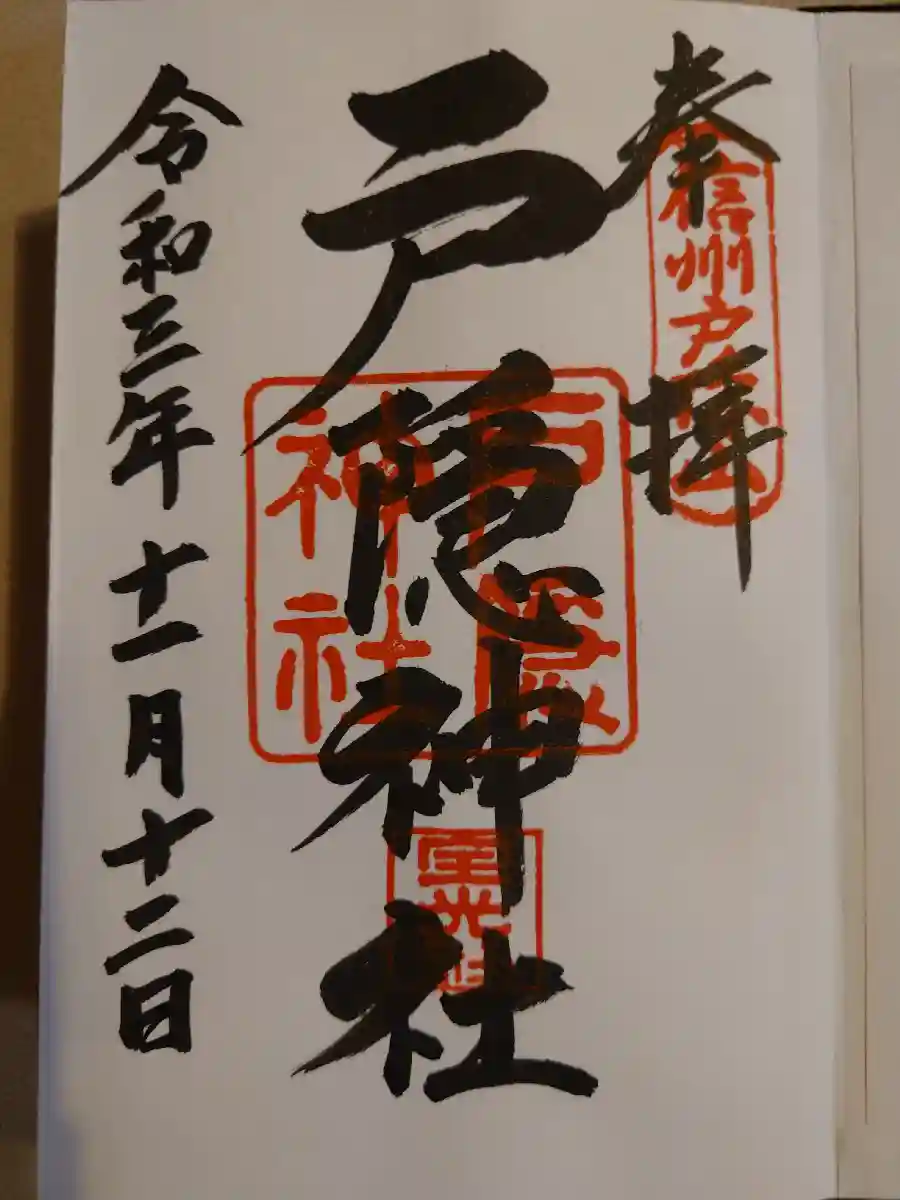 奉拝
信州戸隠山
戸隠神社
戸隠
神社
令和三年十一月十二日